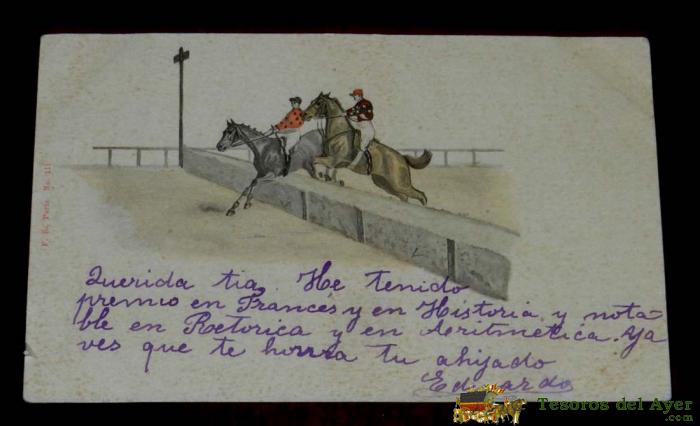 F. S. Paris No. 11
Querida tia. He tenido
premio en Francés y en Historia, y nota-
ble en Retorica y en Aritmetica. Ya
ves que te honra tu ahijado
Eduardo
Tesoros del Ayer
.com